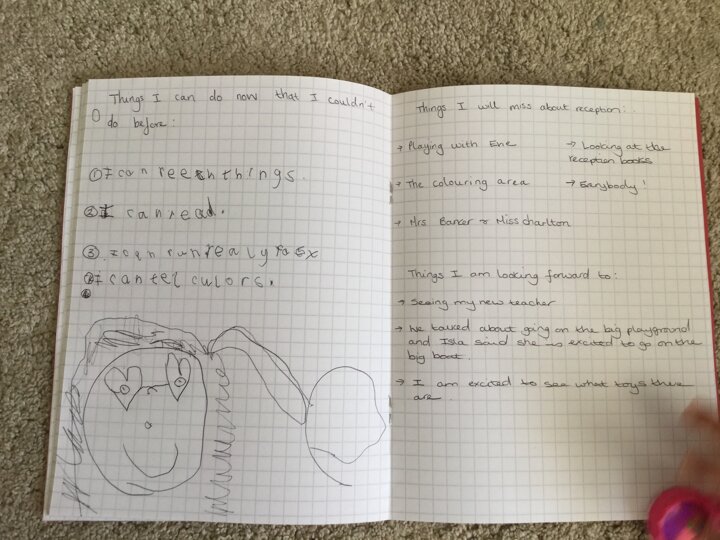 Things I can do now that I couldn't
do before:
① I can things.
② I can read.
③ I can run realy
I can tel culors.
Things I will miss about reception:
→ Playing with
→ Looking at the
reception books
→ The colouring area
→ Everybody!
→ Mrs & Miss charlton
Things I am looking forward to:
→ Seeing my new teacher
→ We talked about going on the big playground
and Isla said she is excited to go on the
big boat.
→ I am excited to see what toys there
are.